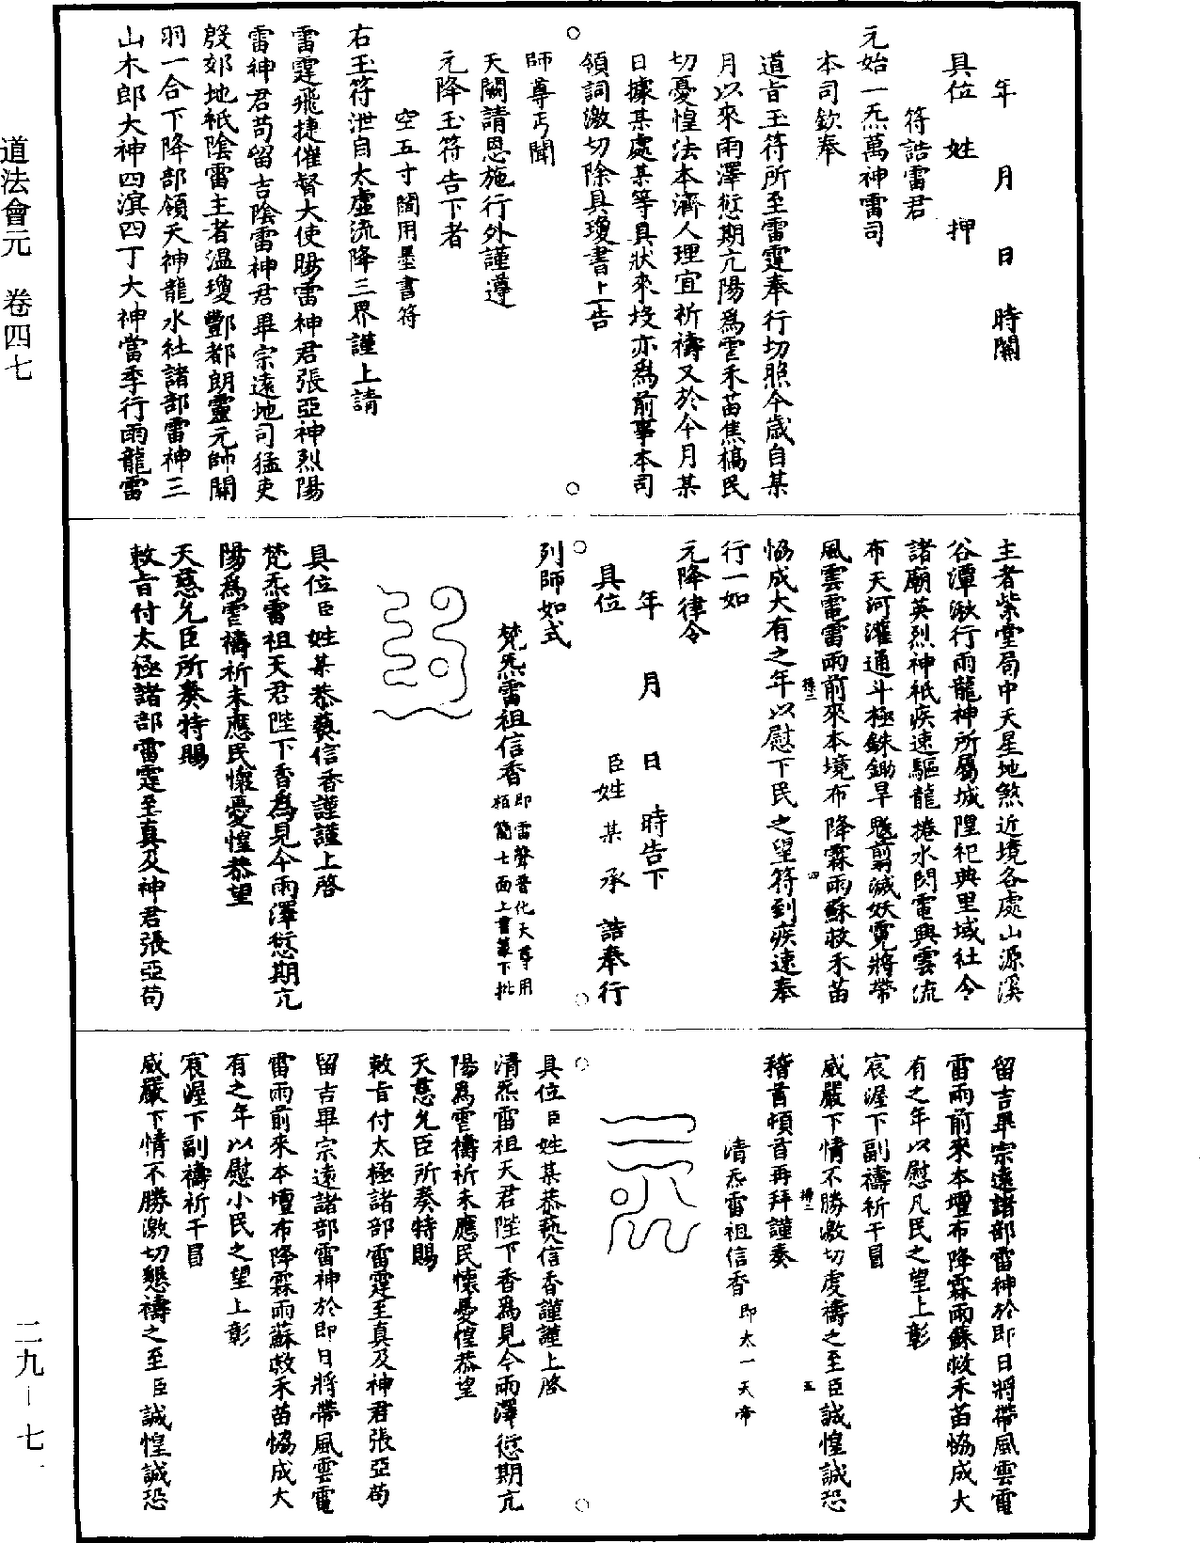 年月日時關
具位姓押
符誥雷君
元始一炁萬神雷司
本司欽奉
道旨玉符所至雷霆奉行切照今歲自某
月以來雨澤愆期亢陽為霅禾苗焦槁民
切憂惶法本濟人理宜祈禱又於今月某
日據某處某等具狀來投亦為前事本司
領詞激切除具瓊書上告
師尊丐聞
天闕請恩施行外謹遵
元降玉符告下者
空五寸闊用墨書符
右玉符泄自太虛流降三界謹上請
雷霆飛捷催督大使暘雷神君張亞神烈陽
雷神君苟留吉陰雷神君畢宗遠地司猛吏
殷郊地祇陰雷主者溫瓊酆都朗靈元帥關
羽一合下降部領天神龍水社諸部雷神三
山木郎大神四溟四丁大神當季行雨龍雷
主者紫堂局中天星地煞近境各處山源溪
谷潭湫行雨龍神所屬城隍祀典里域社令
諸廟英烈神祇疾速驅龍捲水閃電興雲流
布天河灌通斗極銖鋤旱魃剪滅妖霓將帶
風雲雷雨前來本境布降霖雨蘇救禾苗
協成大有之年以慰下民之望符到疾速奉
行一如
元降律令
年月日時告下
具位臣姓某承誥奉行
列師如式
梵炁雷祖信香即雷聲普化天尊用栢簡七面上書篆下批
具位臣姓某恭爇信香謹謹上啓
梵炁雷祖天君陛下香為見今雨澤愆期亢
陽為霅禱祈未應民懷憂惶恭望
天慈允臣所奏特賜
敕旨付太極諸部雷霆至真及神君張亞苟
留吉畢宗遠諸部雷神於即日將帶風雲電
雷雨前來本壇布降霖雨蘇救禾苗協成大
有之年以慰凡民之望上彰
宸渥下副禱祈干冒
威嚴下情不勝激切虔禱之至臣誠惶誠恐
稽首頓首再拜謹奏
清炁雷祖信香即太一天帝
具位臣姓某恭爇信香謹謹上啓
清炁雷祖天君陛下香為見今雨澤愆期亢
陽為霅禱祈未應民懷憂惶恭望
天慈允臣所奏特賜
敕旨付太極諸部雷霆至真及神君張亞苟
留吉畢宗遠諸部雷神於即日將帶風雲電
雷雨前來本壇布降霖雨蘇救禾苗協成大
有之年以慰小民之望上彰
宸渥下副禱祈干冒
威嚴下情不勝激切懇禱之至臣誠惶誠恐
道法會元 卷四七
二九—七